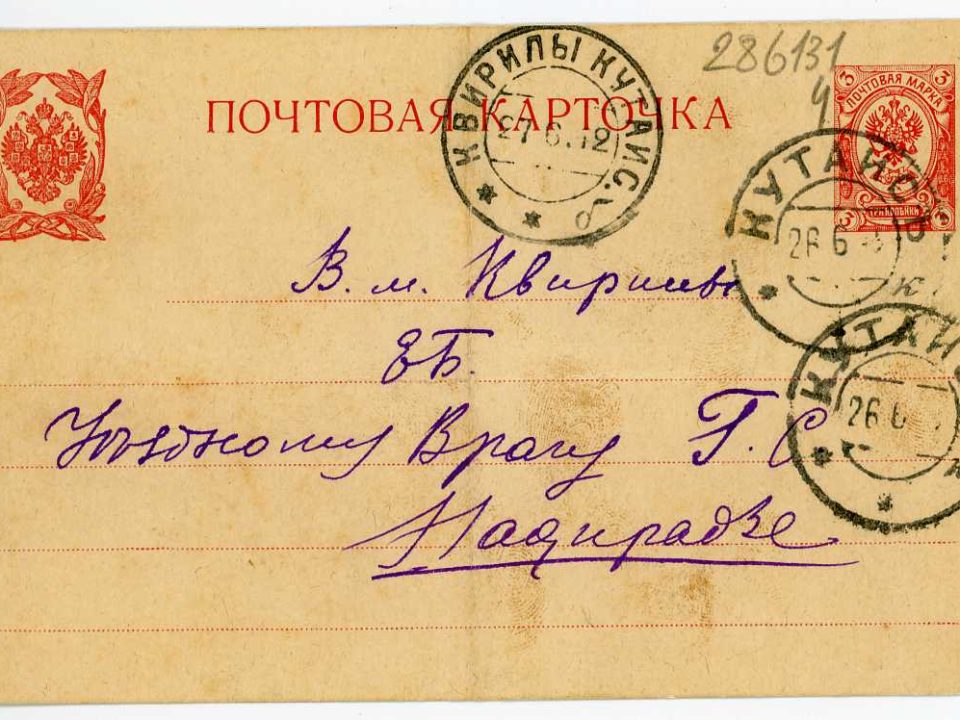 286131
ч
ПОЧТОВАЯ КАРТОЧКА
ПОЧТОВАЯ МАРКА
3 3
3
ТРИ КОПѢЙКИ
КВИРИЛЫ КУТАИС.
27 6.12
КУТАИСЪ
26 6
КУТАИ
26 6
В. м. Квирилы
ЕВ.
Уѣздному Врачу Г. С
Надирадзе